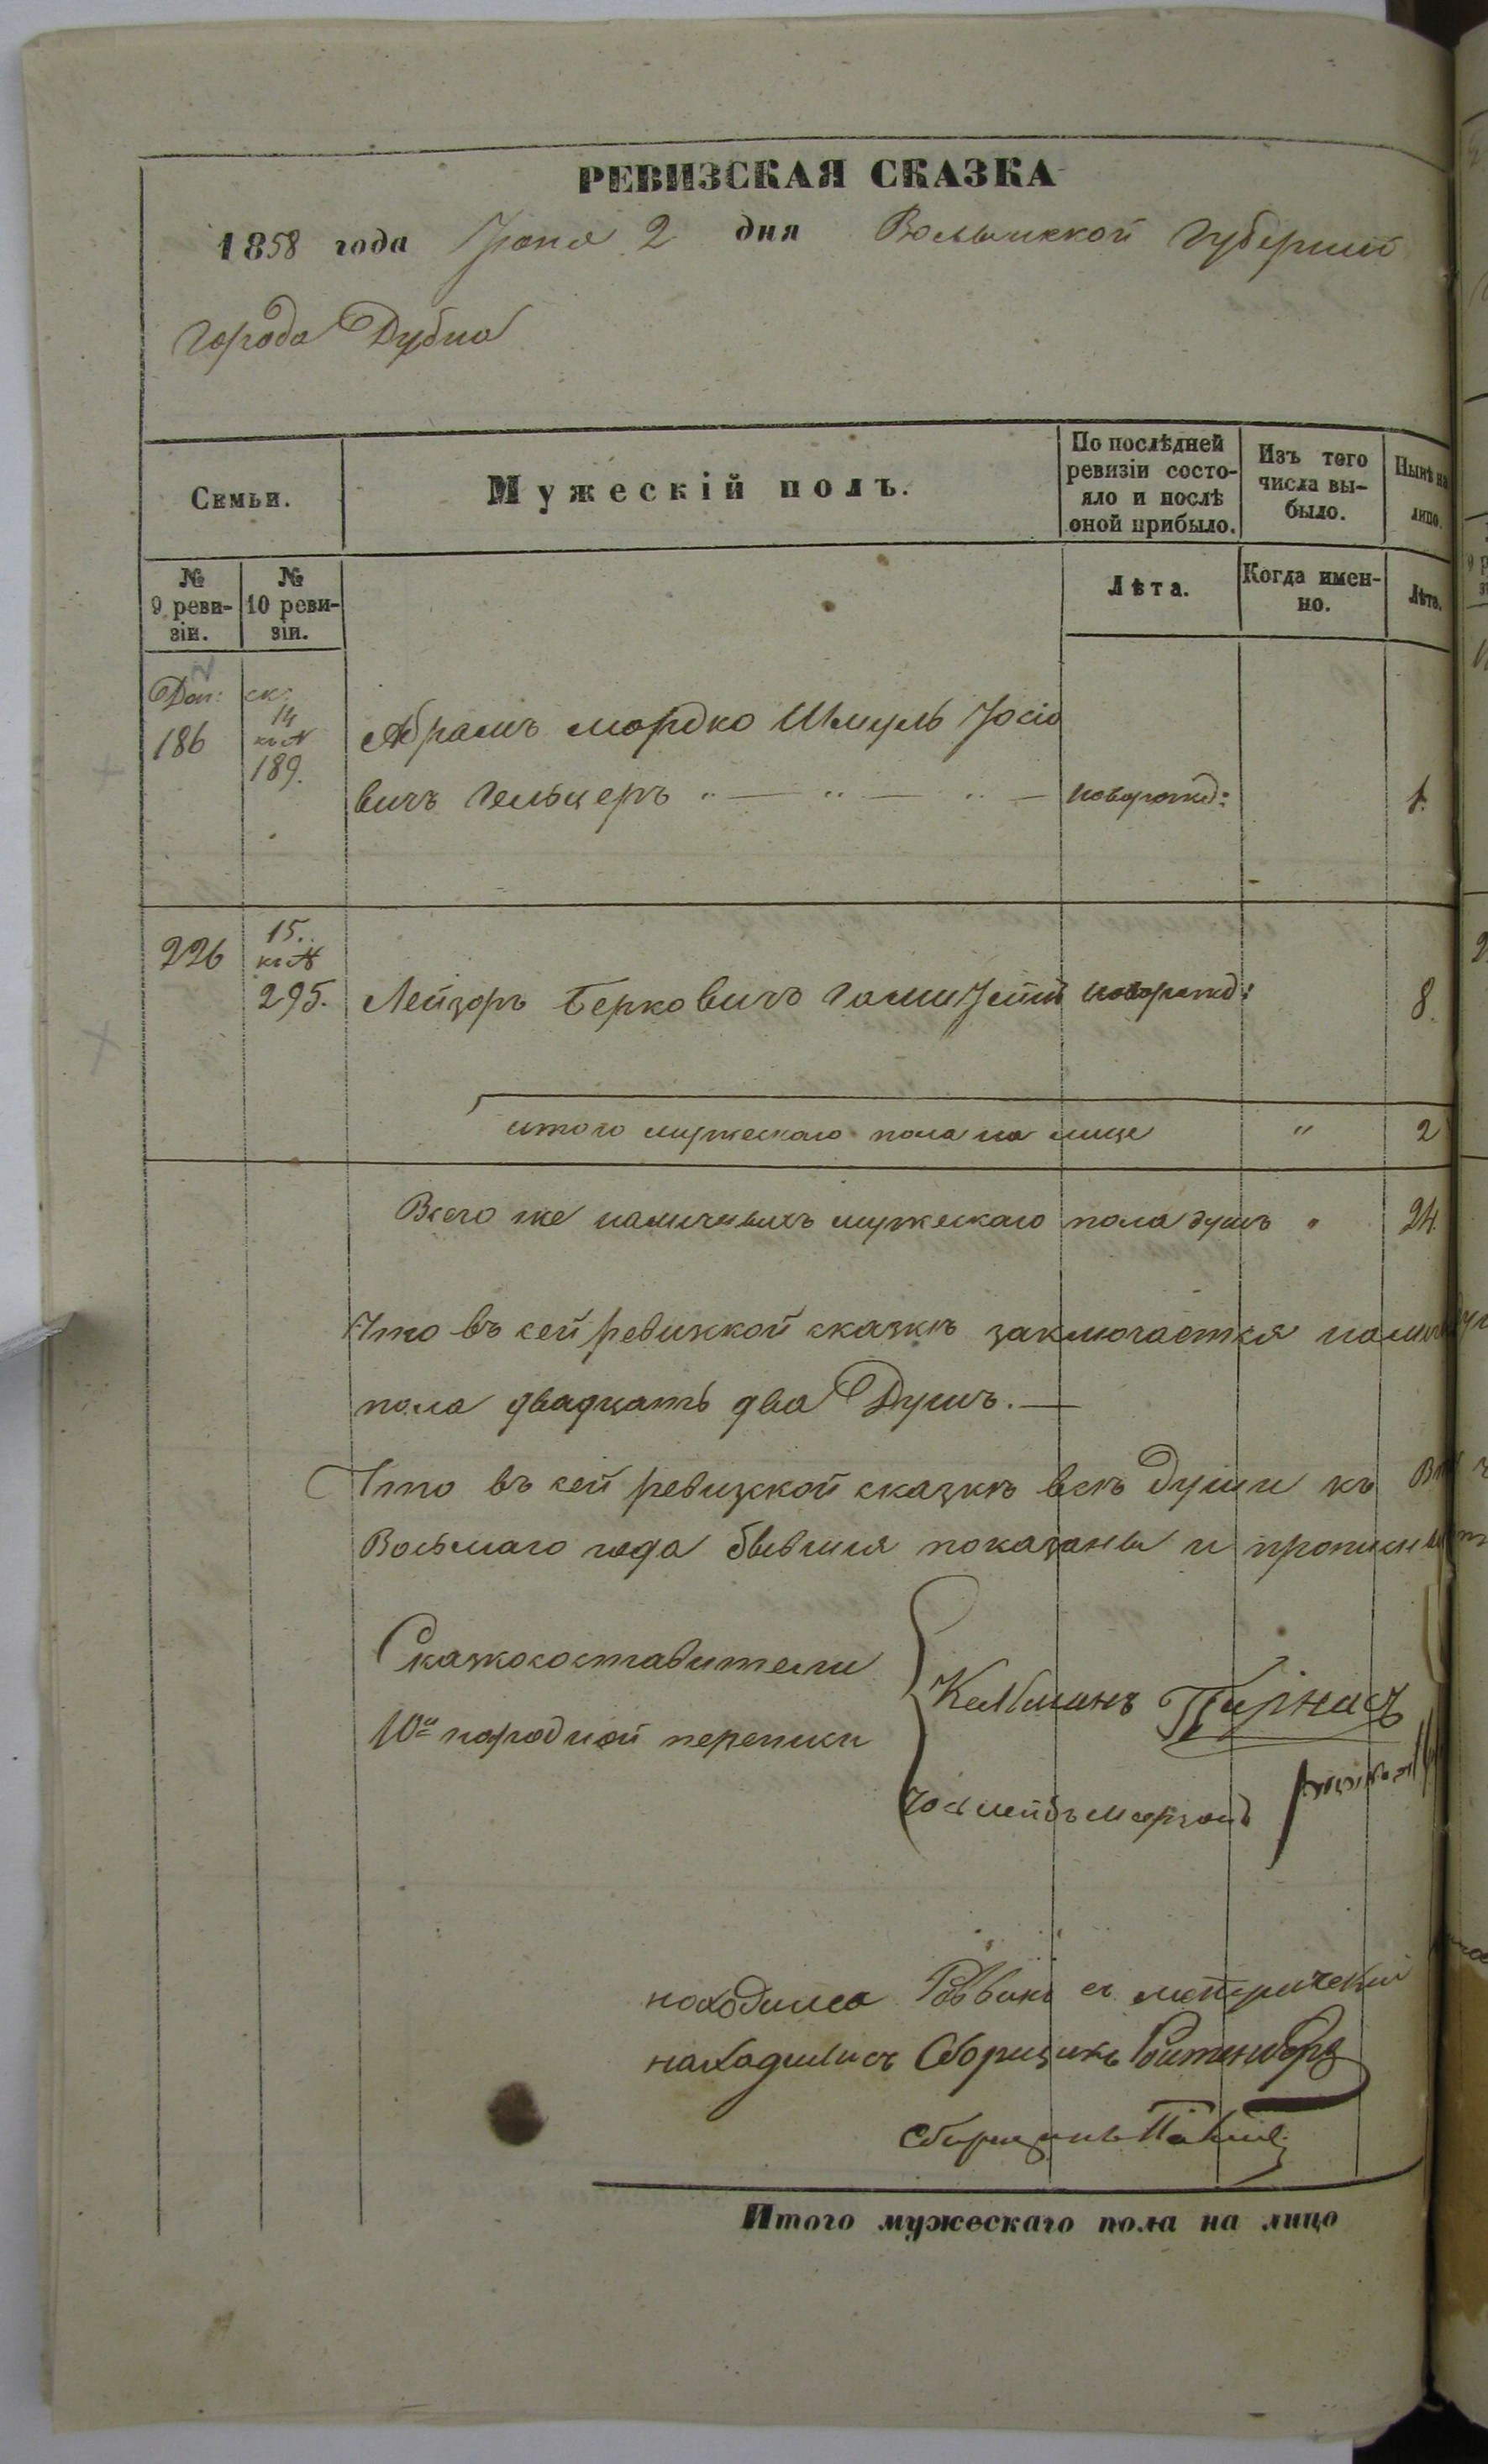 РЕВИЗСКАЯ СКАЗКА
1858 года Іюня 2 дня Волынской Губерніи
Города Дубна
Семьи.
Мужескій полъ.
По послѣдней ревизіи состо-
яло и послѣ оной прибыло.
Изъ того числа вы-
было.
Нынѣ на лицо.
№ 9 реви-
зіи.
№ 10 реви-
зіи.
Лѣта.
Когда имен-
но.
Лѣта.
Доп: ск:
186
14
къ №
189.
Абрамъ Мордко Шмуль Іосіо
вичъ Гельцеръ новорожд: 1.
226
15.
къ №
295.
Лейзоръ Берковичъ новорожд: 8.
итого мужескаго пола на лице " 2
Всего же наличныхъ мужескаго пола душъ " 24.
Что въ сей ревизской сказкѣ заключается
пола двадцать два Душъ.
Что въ сей ревизской сказкѣ всѣ души къ
Восьмаго года бывшія показаны и
Сказкосоставители
10й народной переписи
Кельманъ
находился Раввинъ
находились Сборщикъ
Сборщикъ
Итого мужескаго пола на лицо